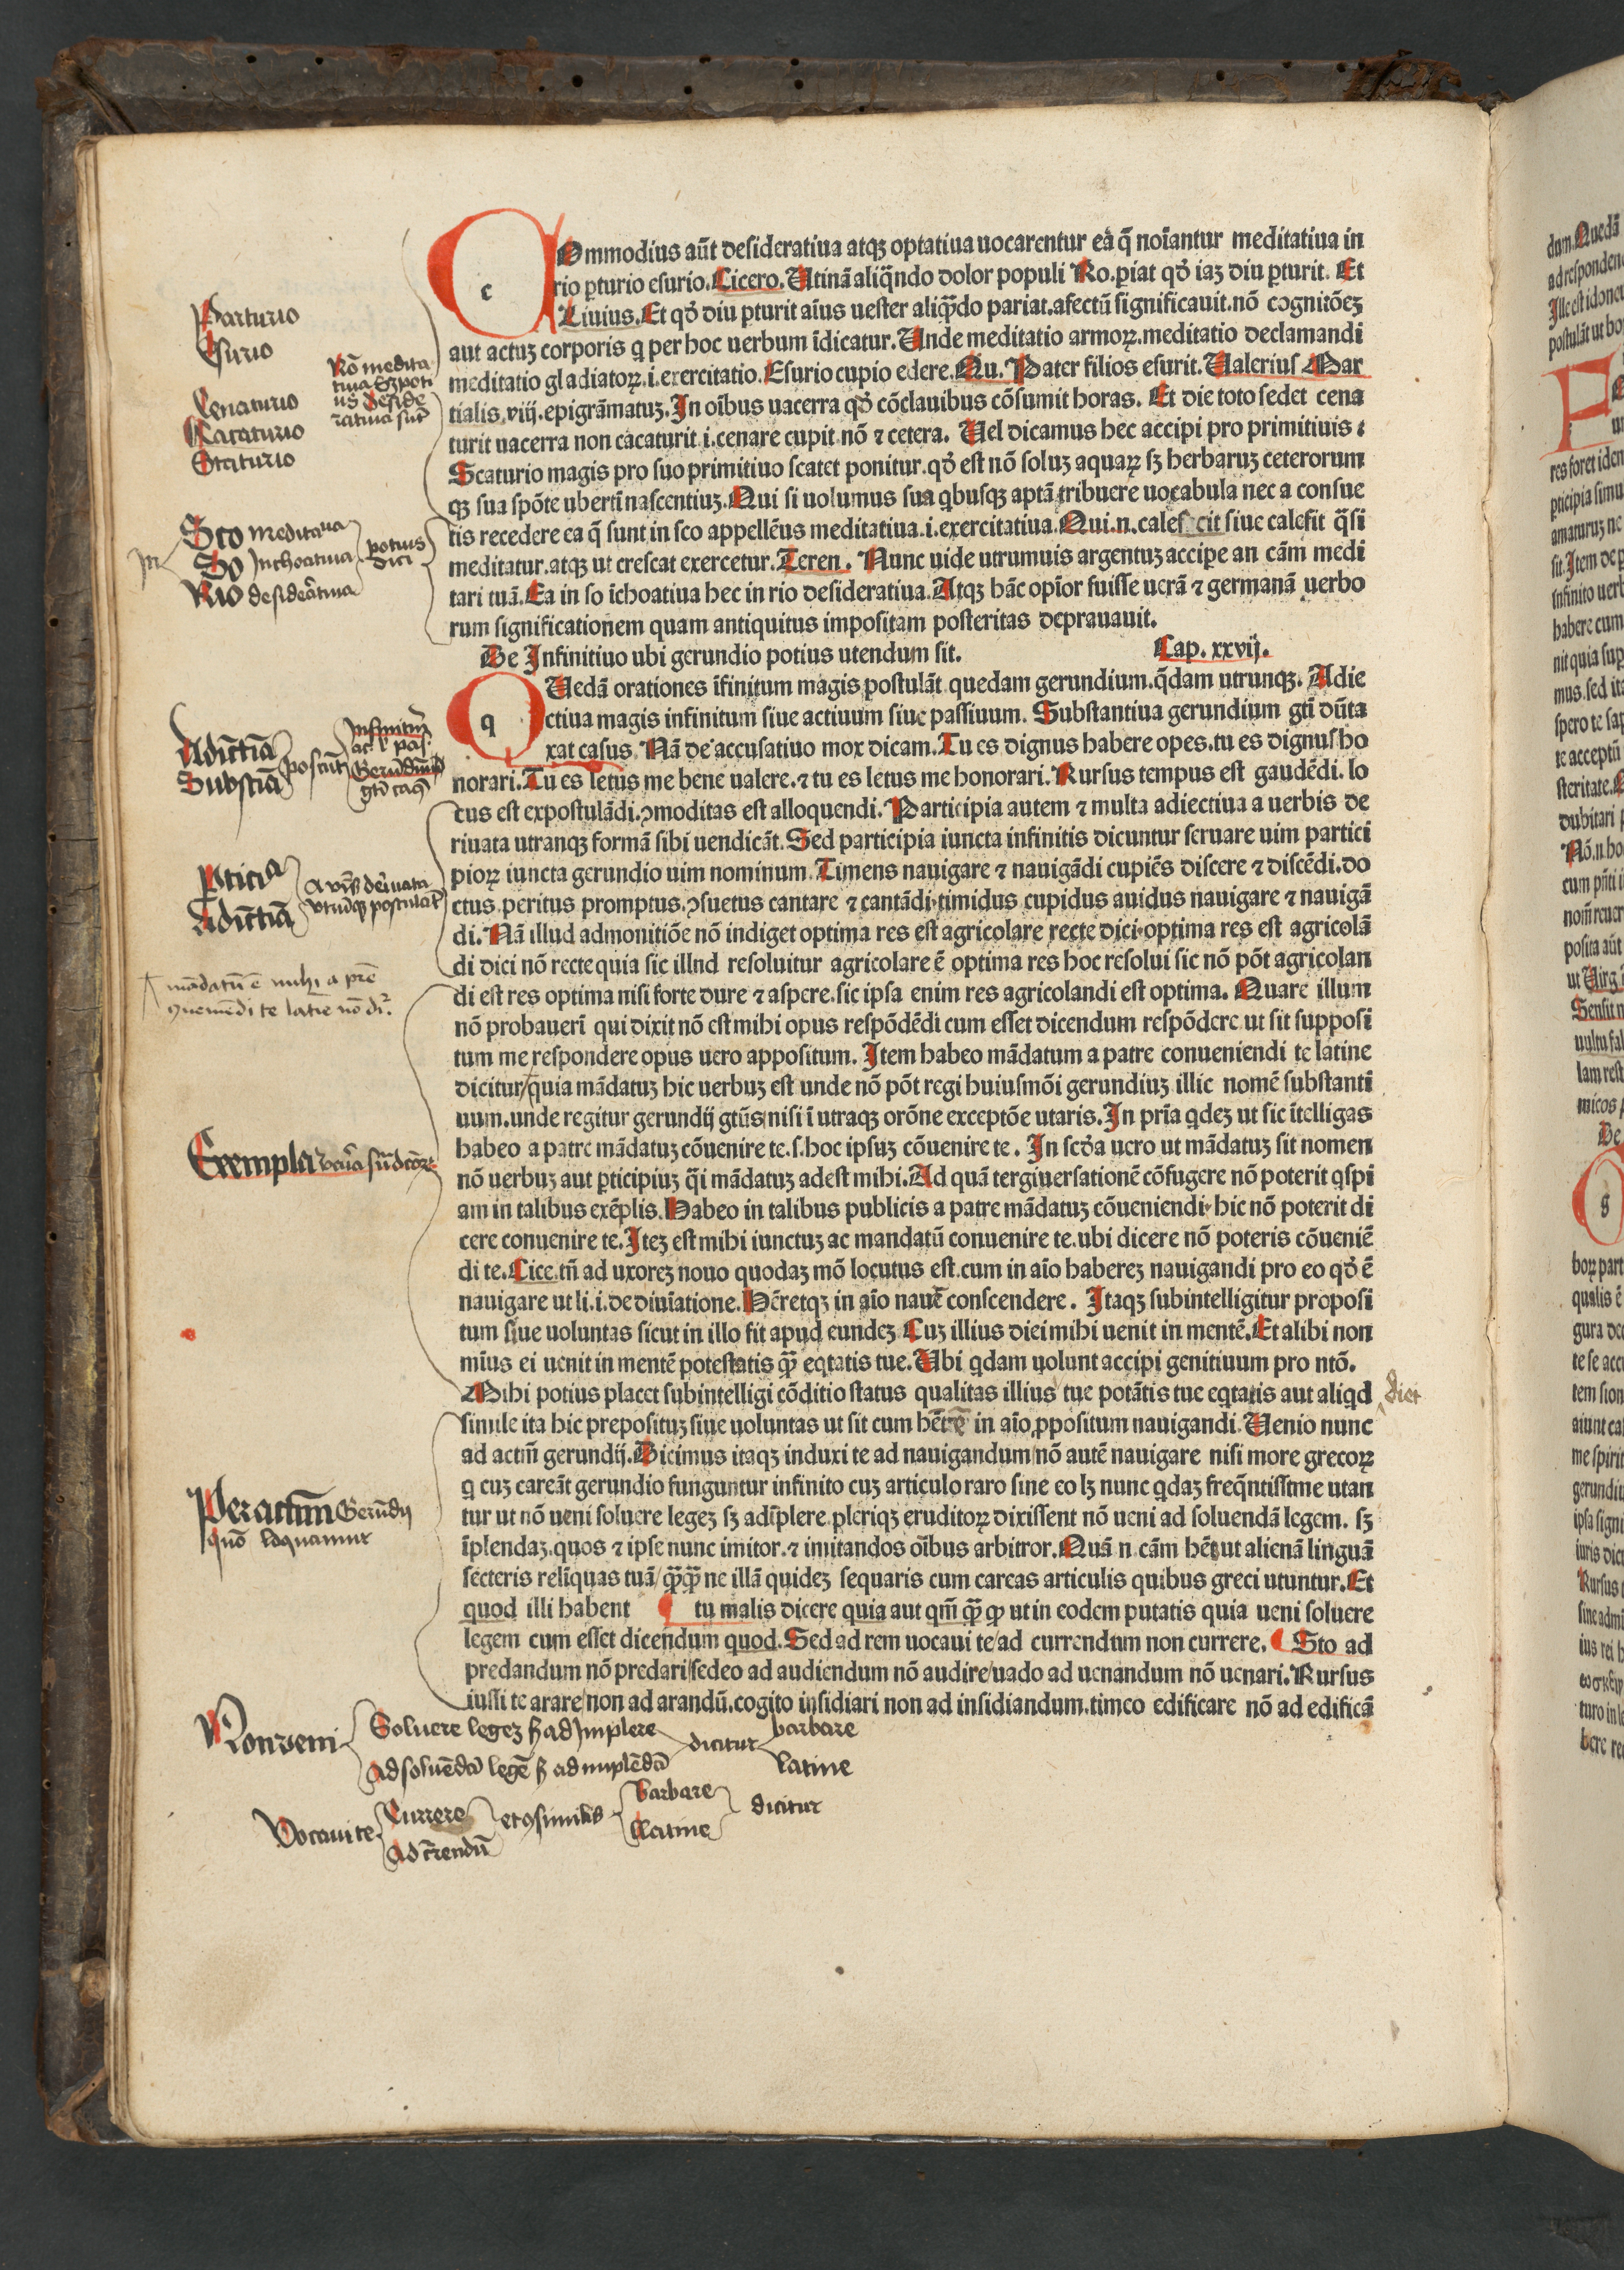 COmmodius aūt desideratiua atqʒ optatiua uocarentur ea q̄ noīantur meditatiua in
rio ꝑturio esurio. Cicero. Utinā aliq̄ndo dolor populi Ro. ꝑiat qđ iaʒ diu ꝑturit. Et
Liuius. Et qđ diu pturit aīus uester aliq̄do pariat. afectū significauit. nō cognitōeʒ
aut actuʒ corporis q per hoc uerbum īdicatur. Unde meditatio armoꝝ. meditatio declamandi
meditatio gladiatoꝝ. i. exercitatio. Esurio cupio edere. Qu. Pater filios esurit. Ualerius Mar
tialis. viij. epigrāmatuʒ. In oībus uacerra qđ cōclauibus cōsumit horas. Et die toto sedet cena
turit uacerra non cacaturit. i. cenare cupit. nō ⁊ cetera. Uel dicamus hec accipi pro primitiuis ⁊
Scaturio magis pro suo primitiuo scatet ponitur. qđ est nō soluʒ aquaꝝ sʒ herbaruʒ ceterorum
qʒ sua spōte ubertī nascentiuʒ. Qui si uolumus sua qbusqʒ aptā tribuere uocabula nec a consue
tis recedere ea q̄ sunt in sco appellēus meditatiua. i. exercitatiua. Qui. n. calescit siue calefit q̄si
meditatur. atqʒ ut crescat exercetur. Teren. Nunc uide utrumuis argentuʒ accipe an cām medi
tari tuā. Ea in so īchoatiua hec in rio desideratiua. Atqʒ hāc opīor fuisse uerā ⁊ germanā uerbo
rum significationem quam antiquitus impositam posteritas deprauauit.
De Infinitiuo ubi gerundio potius utendum sit. Cap. xxvij.
QUedā orationes īfinitum magis postulāt quedam gerundium. q̄dam utrunqʒ. Adie
ctiua magis infinitum siue actiuum siue passiuum. Substantiua gerundium gtī dūta
xat casus. Nā de accusatiuo mox dicam. Tu es dignus habere opes. tu es dignus ho
norari. Tu es letus me bene ualere. ⁊ tu es letus me honorari. Rursus tempus est gaudēdi. lo
cus est expostulādi. ꝯmoditas est alloquendi. Participia autem ⁊ multa adiectiua a uerbis de
riuata utranqʒ formā sibi uendicāt. Sed participia iuncta infinitis dicuntur seruare uim partici
pioꝝ iuncta gerundio uim nominum. Timens nauigare ⁊ nauigādi cupiēs discere ⁊ discēdi. do
ctus peritus promptus. ꝯsuetus cantare ⁊ cantādi. timidus cupidus auidus nauigare ⁊ nauigā
di. Nā illud admonitiōe nō indiget optima res est agricolare recte dici. optima res est agricolā
di dici nō recte quia sic illnd resoluitur agricolare ē optima res hoc resolui sic nō pōt agricolan
di est res optima nisi forte dure ⁊ aspere. sic ipsa enim res agricolandi est optima. Quare illum
nō probauerī qui dixit nō est mihi opus respōdēdi cum esset dicendum respōdere ut sit supposi
tum me respondere opus uero appositum. Item habeo mādatum a patre conueniendi te latine
dicitur/quia mādatuʒ hic uerbuʒ est unde nō pōt regi huiusmōi gerundiuʒ illic nomē substanti
uum. unde regitur gerundij gtūs/nisi ī utraqʒ orōne exceptōe utaris. In pria qdeʒ ut sic ītelligas
habeo a patre mādatuʒ cōuenire te. s. hoc ipsuʒ cōuenire te. In scđa uero ut mādatuʒ sit nomen
nō uerbuʒ aut ꝑticipiuʒ q̄i mādatuʒ adest mihi. Ad quā tergiuersationē cōfugere nō poterit qspi
am in talibus exēplis. Habeo in talibus publicis a patre mādatuʒ cōueniendi. hic nō poterit di
cere conuenire te. Iteʒ est mihi iunctuʒ ac mandatū conuenire te. ubi dicere nō poteris cōueniē
di te. Cice. tn̄ ad uxoreʒ nouo quodaʒ mō locutus est. cum in aīo habereʒ nauigandi pro eo qđ ē
nauigare ut li. i. de diuīatione. Hēretqʒ in aīo nauē conscendere. Itaqʒ subintelligitur proposi
tum siue uoluntas sicut in illo fit apud eundeʒ Cuʒ illius diei mihi uenit in mentē. Et alibi non
mīus ei uenit in mentē potestatis q̄ꝫ eqtatis tue. Ubi qdam uolunt accipi genitiuum pro ntō.
Mihi potius placet subintelligi cōditio status qualitas illius tue potātis tue eqtatis aut aliqd
simile ita hic prepositu ʒ siue uoluntas ut sit cum hērē in aīo ꝓpositum nauigandi. Uenio nunc
ad actm̄ gerundij. Dicimus itaqʒ induxi te ad nauigandum/nō autē nauigare nisi more grecoꝝ
q cuʒ careāt gerundio funguntur infinito cuʒ articulo raro sine eo lʒ nunc qdaʒ freq̄ntissime utan
tur ut nō ueni soluere legeʒ sʒ adīplere. pleriqʒ eruditoꝝ dixissent nō ueni ad soluendā legem. sʒ
īplendaʒ. quos ⁊ ipse nunc imitor. ⁊ imitandos oībus arbitror. Quā n cām hēs ut alienā linguā
secteris relīquas tuā/q̄ꝫq̄ꝫ ne illā quideʒ sequaris cum careas articulis quibus greci utuntur. Et
quod illi habent tu malis dicere quia aut qm̄ q̄ꝫ ꝙ ut in eodem putatis quia ueni soluere
legem cum esset dicendum quod. Sed ad rem uocaui te/ad currendum non currere. Sto ad
predandum nō predari/sedeo ad audiendum nō audire/uado ad uenandum nō uenari. Rursus
iussi te arare/non ad arandū. cogito insidiari non ad insidiandum. timeo edificare nō ad edificā
Parturio
Esurio
Cenaturio
Cacaturio
Scaturio
Nō medita
tiua sʒ poti
us deside
ratiua sūt
In
Sco meditatiua
So Inchoatiua
Rio desiderātiua
potius
dici
Adiectiā
Substiā
poscūt
Infinitū
act l pas.
Gerūdiū
gtī casus
Pticiā
Adiectiā
A vbīs deriuata
vtrūqʒ postulāt
mādatū ē mihi a pr̄e
ꝯueniēdi te latīe nō dr̄.
Exempla
diei
Per actm̄ Gerūdij
quō loquamur
Non veni
Soluere legeʒ sʒ ad Implere
Ad soluēdā legē sʒ ad implēdā
dicitur
barbare
latine
Vocaui te
Currere
Ad c̄rendū
et ꝯsimilibs
Barbare
Latine
dicitur